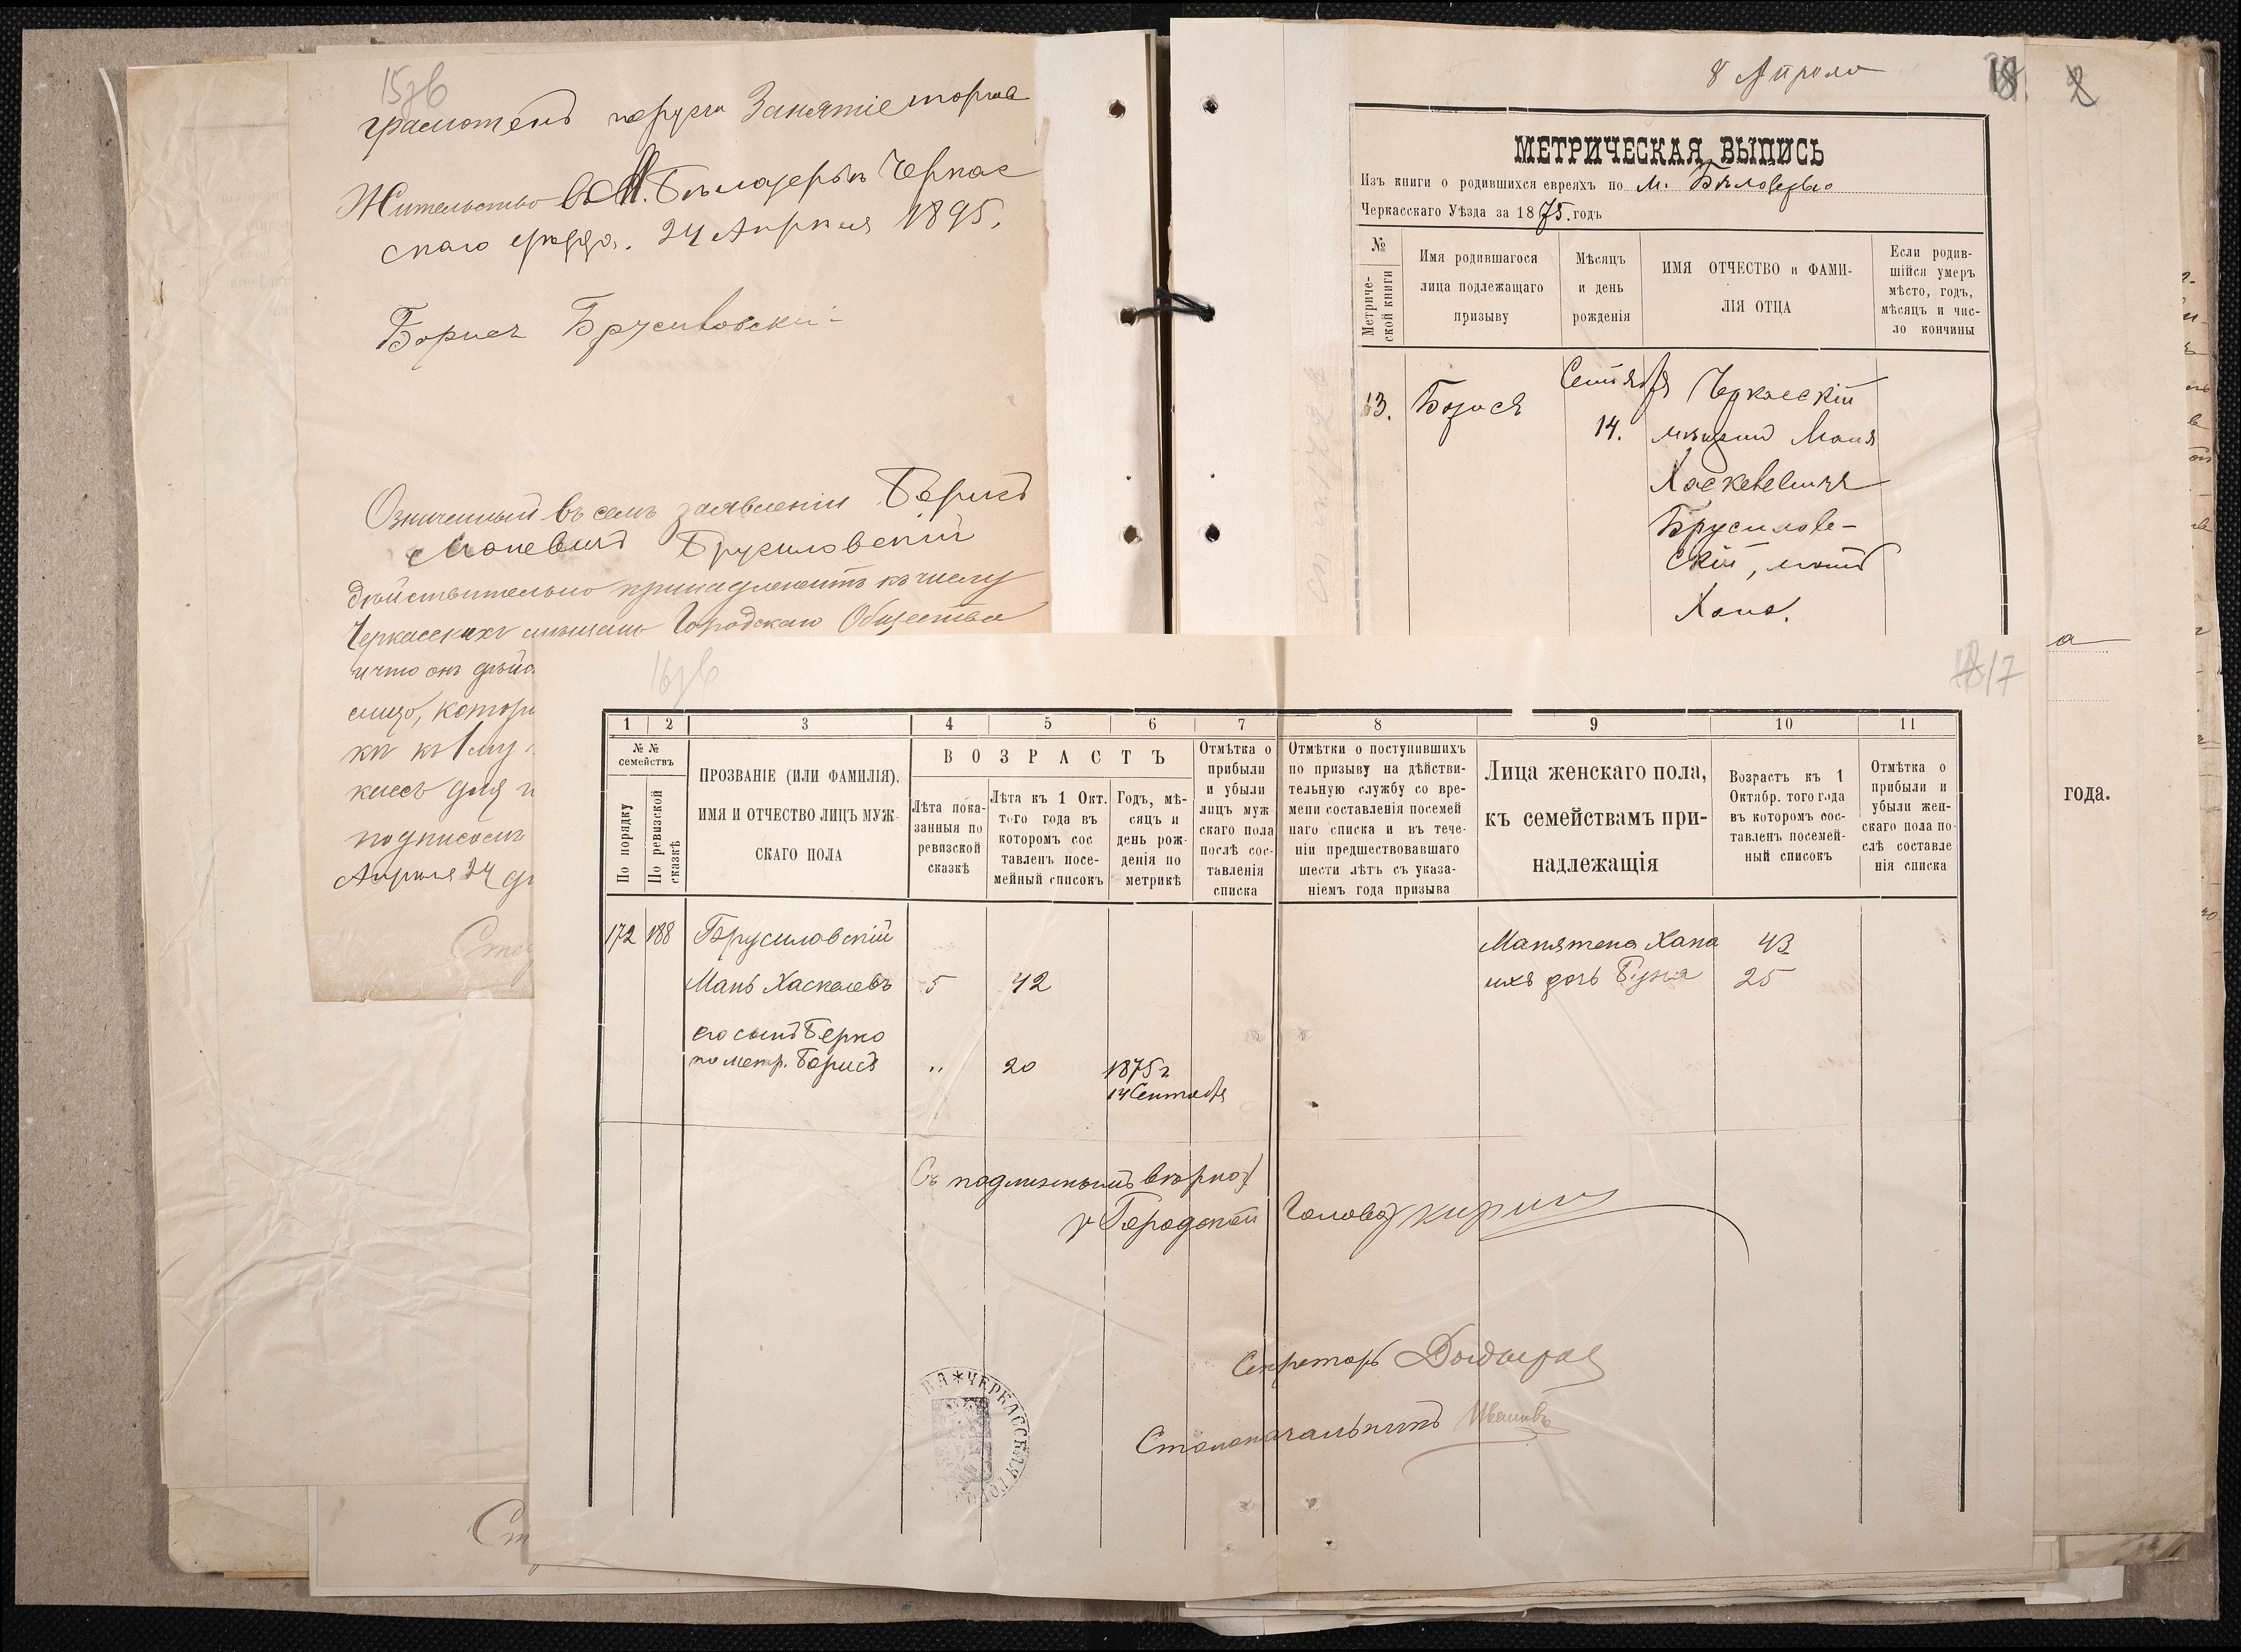 15зв
грамотенъ порусски Занятіе торгов
Жительство въ М. Бѣлозерьѣ Черкас
скаго уѣзда. 24 Апрѣля 1895.
Борисъ Брусиловскій
Означенный въ семъ заявленіи Борисъ
Маневичъ Брусиловскій
дѣйствительно принадлежитъ къ числу
Черкасскихъ мѣщанъ Городскаго Общества
и что онъ дѣйс
лицо, котор
ки къ 1 му
подписомъ
Апрѣля 24 дн
8 Апреля
18. 2
МЕТРИЧЕСКАЯ ВЫПИСЬ
Изъ книги о родившихся евреяхъ по м.
Черкасскаго Уѣзда за 1875. годъ
№
Метриче-
ской книги
Имя родившагося
лица подлежащаго
призыву
Мѣсяцъ
и день
рожденія
ИМЯ ОТЧЕСТВО и ФАМИ-
ЛІЯ ОТЦА
Если родив-
шійся умеръ
мѣсто, годъ,
мѣсяцъ и чис-
ло кончины
13.
Борисъ
Сентября
14.
Черкасскій
мѣщанин Маня
Хаскелевичъ
Брусилов-
скій, мать
Хана.
а
года.
16зв
18 17
1 2 3 4 5 6 7 8 9 10 11
№ №
семействъ
По порядку
По ревизской
сказкѣ
ПРОЗВАНІЕ (ИЛИ ФАМИЛІЯ),
ИМЯ И ОТЧЕСТВО ЛИЦЪ МУЖ-
СКАГО ПОЛА
ВОЗРАСТЪ
Лѣта пока-
занныя по
ревизской
сказкѣ
Лѣта къ 1 Окт.
того года въ
которомъ сос
тавленъ посе-
мейный списокъ
Годъ, мѣ-
сяцъ и
день рож-
денія по
метрикѣ
Отмѣтка о
прибыли
и убыли
лицъ муж-
скаго пола
послѣ сос-
тавленія
списка
Отмѣтки о поступившихъ
по призыву на дѣйстви-
тельную службу со вре-
мени составленія посемей
наго списка и въ тече-
ніи предшествовавшаго
шести лѣтъ съ указа-
ніемъ года призыва
Лица женскаго пола,
къ семействамъ при-
надлежащія
Возрастъ къ 1
Октябр. того года
въ которомъ сос-
тавленъ посемей-
ный списокъ
Отмѣтка о
прибыли и
убыли жен-
скаго пола по-
слѣ составле
нія списка
172 188 Брусиловскій
Мань Хаскелевъ 5 42
его сынъ Берко
по метр. Борисъ " 20 1875 г
14 Сентября
Маня жена Хана 43
ихъ дочь 25
Съ подлиннымъ вѣрно:
Городской Голова
Секретарь
Столоначальникъ Ивановъ
ЧЕРКАССКАЯ ГОРО